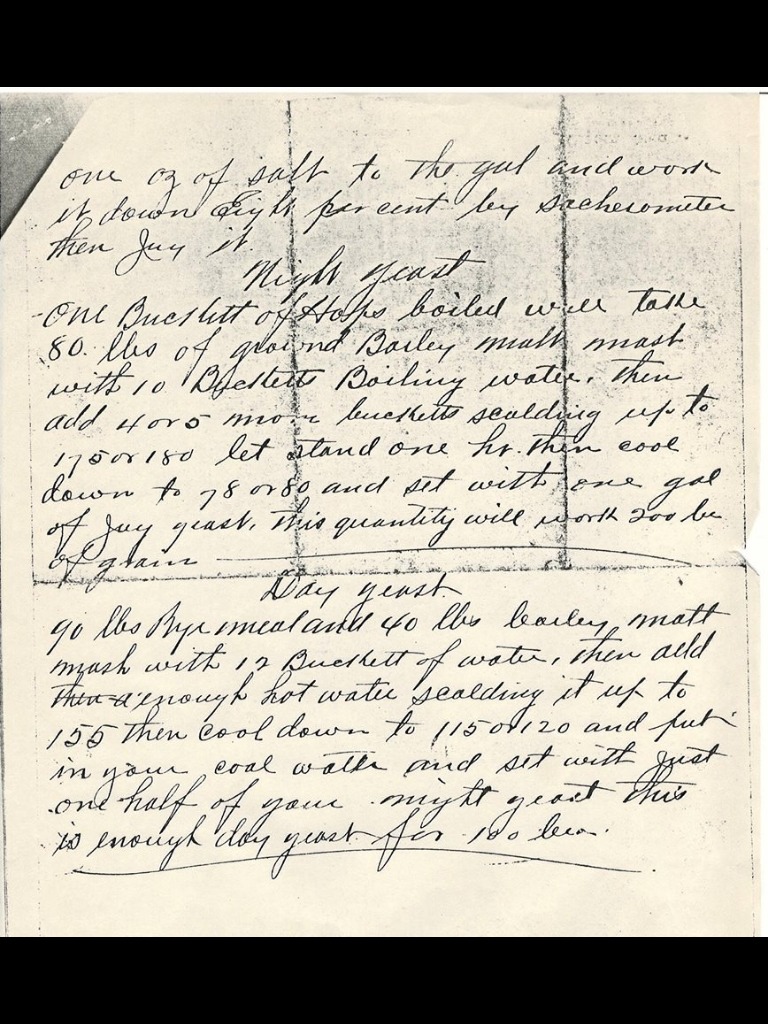 one oz of salt to the gal and work
it down Eight per cent by sacherometer
then Jug it
Night yeast
One Buckett of Hops boiled will take
80 lbs of ground Barley malt mash
with 10 Bucketts Boiling water, then
add 4 or 5 more bucketts scalding up to
175 or 180 let stand one hr. then cool
down to 78 or 80 and set with one gal
of Jug yeast, this quantity will work 200 bu
of grain
Day yeast
90 lbs Rye meal and 40 lbs barley malt
mash with 12 Buckett of water, then add
enough hot water scalding it up to
155 then cool down to 115 or 120 and put
in your cool water and set with Just
one half of your night yeast this
is enough day yeast for 100 bu.